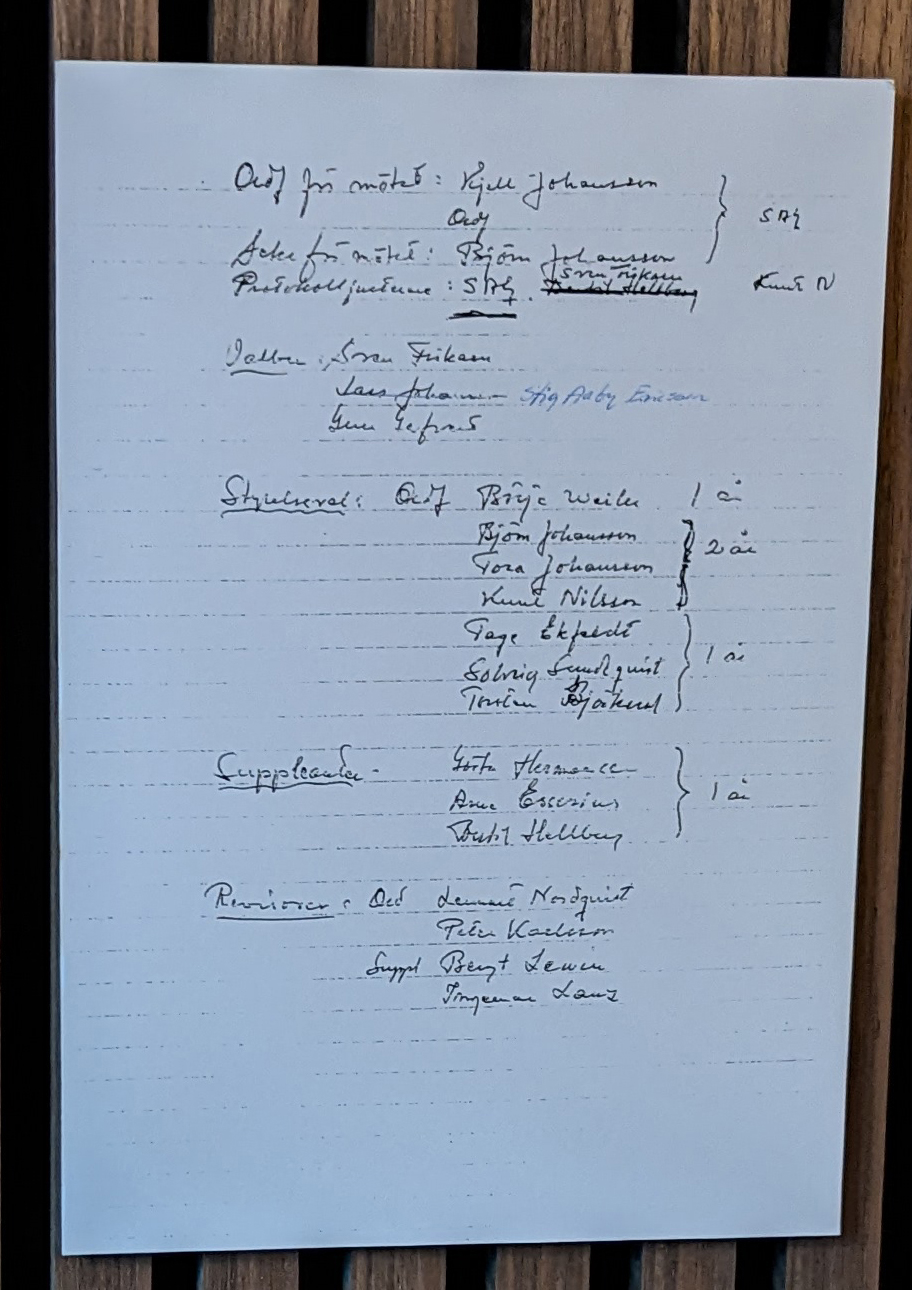 Ordf för mötet: Kjell Johansson
Ordf
Sekr för mötet: Björn Johansson
Sven Erikson
Protokolljusterare: Bertil Hellberg Knut N
Valber: Sven Erikson
Lars Johansson Stig Aaby Ericson
Styrelseval: Ordf Börje Weiler 1 år
Björn Johansson
Tora Johansson 2 år
Knut Nilsson
Tage Ekfeldt
Solvig Sundquist 1 år
Torsten Björkerud
Suppleanter Gösta Hermansson
Arne Esserius 1 år
Bertil Hellberg
Revisorer: Ord Lennart Nordquist
Peter Karlsson
Suppl Bengt Lewin
Ingemar Lanz